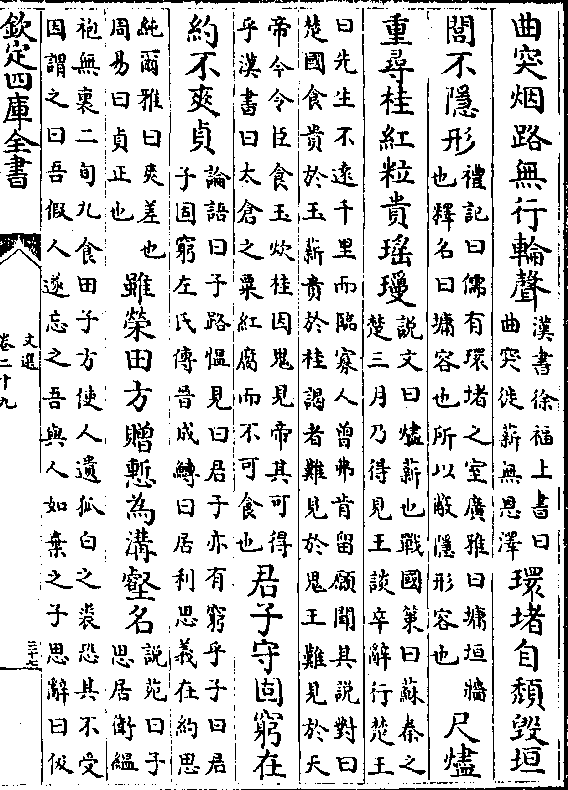 曲突烟路無行輪聲漢書徐福上書曰曲突徙薪無恩澤環堵自頹毀垣
閭不隱形禮記曰儒有環堵之室廣雅曰墉垣牆也釋名曰墉容也所以蔽隱形容也尺燼
重尋桂紅粒貴瑤瓊說文曰燼薪也戰國策曰蘇秦之楚三月乃得見王談卒辭行楚王
曰先生不遠千里而臨寡人曾弗肯留願聞其說對曰楚國食貴於玉薪貴於桂謁者難見於鬼王難見於天
帝今令臣食玉炊桂因鬼見帝其可得乎漢書曰太倉之粟紅腐而不可食也君子守固窮在
約不爽貞論語曰子路愠見曰君子亦有窮乎子曰君子固窮左氏傳晉成鱄曰居利思義在約思
純爾雅曰爽差也周易曰貞正也雖榮田方贈慙為溝壑名說苑曰子思居衛縕
袍無裏二旬九食田子方使人遺狐白之裘恐其不受因謂之曰吾假人遂忘之吾與人如棄之子思辭曰伋
欽定四庫全書
文選
卷二十九
三十七